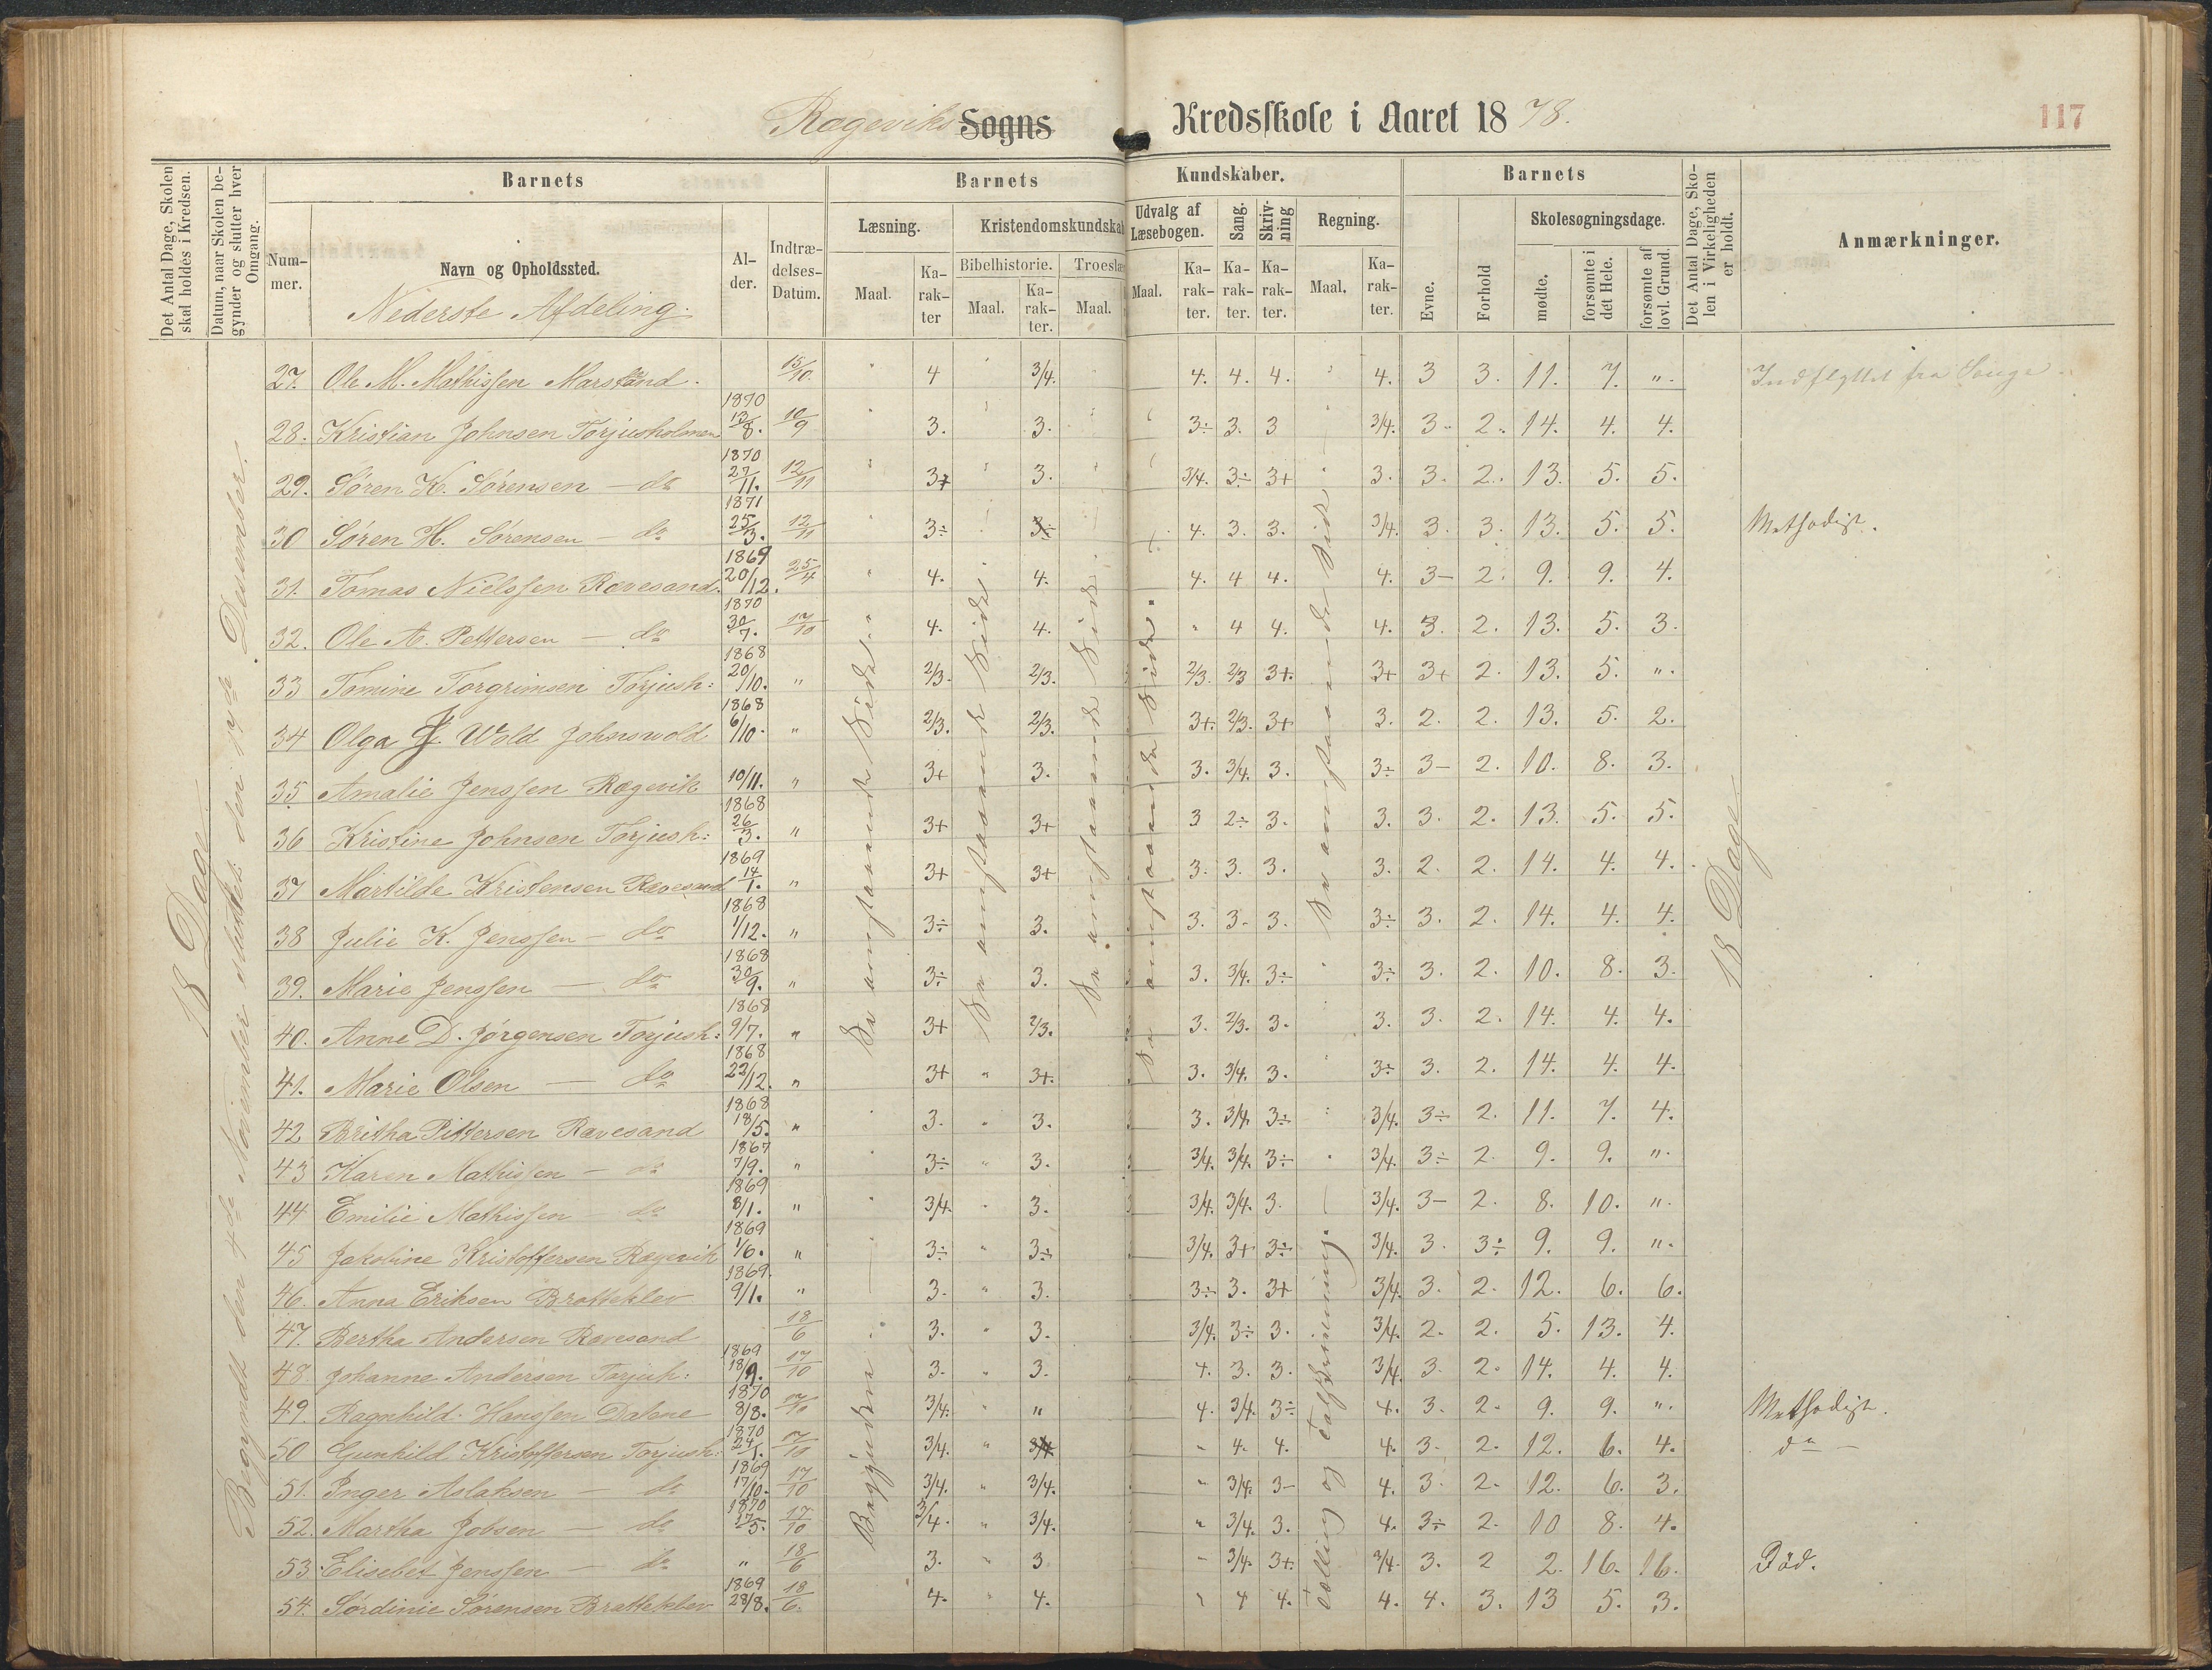 Rægeviks Sogns Kredsskole i Aaret 1878.
117
Det Antal Dage, Skolen skal holdes i Kredsen.
Datum, naar Skolen begynder og slutter hver Omgang.
Barnets
Barnets Kundskaber.
Barnets
Det Antal Dage, Skolen i Virkeligheden er holdt.
Anmærkninger.
Nummer.
Navn og Opholdssted.
Nederste Afdeling.
Alder.
Indtrædelses-Datum.
Læsning.
Kristendomskundskab
Udvalg af Læsebogen.
Sang.
Skrivning
Regning.
Evne.
Forhold
Skolesøgningsdage.
Bibelhistorie.
Troeslæ
Maal.
Karakter
Maal.
Karakter.
Maal.
Maal.
Karakter.
Karakter.
Karakter.
Maal.
Karakter.
mødte.
forsømte i det Hele.
forsømte af lovl. Grund.
18 Dage
Begyndt den 4de November sluttet den 19de Desember.
18 Dage
27. Ole M. Mathissen Marstrand. 15/10. 4 3/4. 4. 4. 4. 4. 3 3. 11. 7. ". Indflyttet fra Songe
28. Kristian Johnsen Torjusholmen 1870 13/8. 10/9 3. 3. 3÷ 3. 3 3/4. 3. 2. 14. 4. 4.
29. Søren K. Sørensen — do 1870 27/11. 12/11 3+ 3. 3/4. 3÷ 3+ 3. 3. 2. 13. 5. 5.
30 Søren H. Sørensen — do 1871 25/3. 12/11 3÷ 3÷ 4. 3. 3. 3/4. 3. 3. 13. 5. 5. Methodist.
31. Tomas Nielssen Rævesand. 1869 20/12. 25/4 4. 4. 4. 4 4. 4. 3- 2. 9. 9. 4.
32. Ole A. Pettersen — do 1870 30/7. 17/10 4. 4. " 4 4. 4. 3. 2. 13. 5. 3.
33 Tomine Torgrimsen Torjush: 1868 20/10. " 2/3. 2/3. 2/3. 2/3 3+. 3+ 3+ 2. 13. 5. ".
34 Olga J. Wold Johnswold 1868 6/10. " 2/3. 2/3. 3+. 2/3. 3+ 3. 2. 2. 13. 5. 2.
35 Amalie Jenssen Rægevik 10/11. " 3+ 3. 3. 3/4. 3. 3÷ 3- 2. 10. 8. 3.
36 Kristine Johnsen Torjush: 1868 26/3. " 3+ 3+ 3 2÷ 3. 3. 3. 2. 13. 5. 5.
37 Martilde Kristensen Rævesand 1869 14/1. " 3+ 3+ 3. 3. 3. 3. 2. 2. 14. 4. 4.
38 Julie K. Jenssen — do 1868 1/12. " 3÷ 3. 3. 3- 3. 3÷ 3. 2. 14. 4. 4.
39. Marie Jenssen — do 1868 30/9. " 3÷ 3. 3. 3/4. 3÷ 3÷ 3. 2. 10. 8. 3.
40. Anne D. Jørgensen Torjush: 1868 9/7. " 3+ 2/3. 3. 2/3. 3. 3. 3. 2. 14. 4. 4.
41. Marie Olsen — do 1868 22/12. " 3+ " 3+. 3. 3/4. 3. 3÷ 3. 2. 14. 4. 4.
42 Britha Pittersen Rævesand 1868 18/5. " 3. " 3. 3. 3/4. 3÷ 3/4. 3÷ 2. 11. 7. 4.
43 Karen Mathissen — do 1867 7/9. " 3÷ " 3. 3/4. 3/4. 3÷ 3/4. 3÷ 2. 9. 9. ".
44 Emilie Mathissen — do 1869 8/1. " 3/4. " 3. 3/4. 3/4. 3. 3/4. 3- 2. 8. 10. ".
45 Jakobine Kristoffersen Rægevik 1869 1/6. " 3÷ " 3÷ 3/4. 3+ 3÷ 3/4. 3. 3÷ 9. 9. ".
46. Anna Eriksen Bratteklev 1869. 9/1. " 3. " 3. 3÷ 3. 3+ 3/4. 3. 2. 12. 6. 6.
47. Bertha Andersen Rævesand 18/6 3. " 3. 3/4. 3÷ 3. 3/4. 2. 2. 5. 13. 4.
48. Johanne Andersen Torjush: 1869 18/9. 17/10 3. " 3. 4. 3. 3. 3/4. 3. 2. 14. 4. 4.
49. Ragnhild Hanssen Dalene 1870 8/8. 17/10 3/4. " " 4. 3/4. 3÷ 4. 3. 2. 9. 9. ". Methodist.
50 Gunhild Kristoffersen Torjush: 1870 24/1. 17/10 3/4. " 3/4 " 4. 4. 4. 3. 2. 12. 6. 4. do —
51. Inger Aslaksen — do 1869 17/10. 17/10 3/4. " 3/4. " 3/4. 3- 4. 3. 2. 12. 6. 3.
52. Martha Jobsen — do 1870 17/5. 17/10 3/4. " 3/4. " 3/4. 3. 4. 3÷ 2. 10 8. 4.
53. Elisebet Jenssen — do " 18/6 3. " 3 " 3/4. 3+. 3/4. 3. 2 2. 16. 16. Död.
54. Sørdinie Sørensen Bratteklev 1869 28/8. 18/6. 4. " 4. " 4 4. 4. 4. 3. 13 5. 3.
Tælling og Talskrivning.